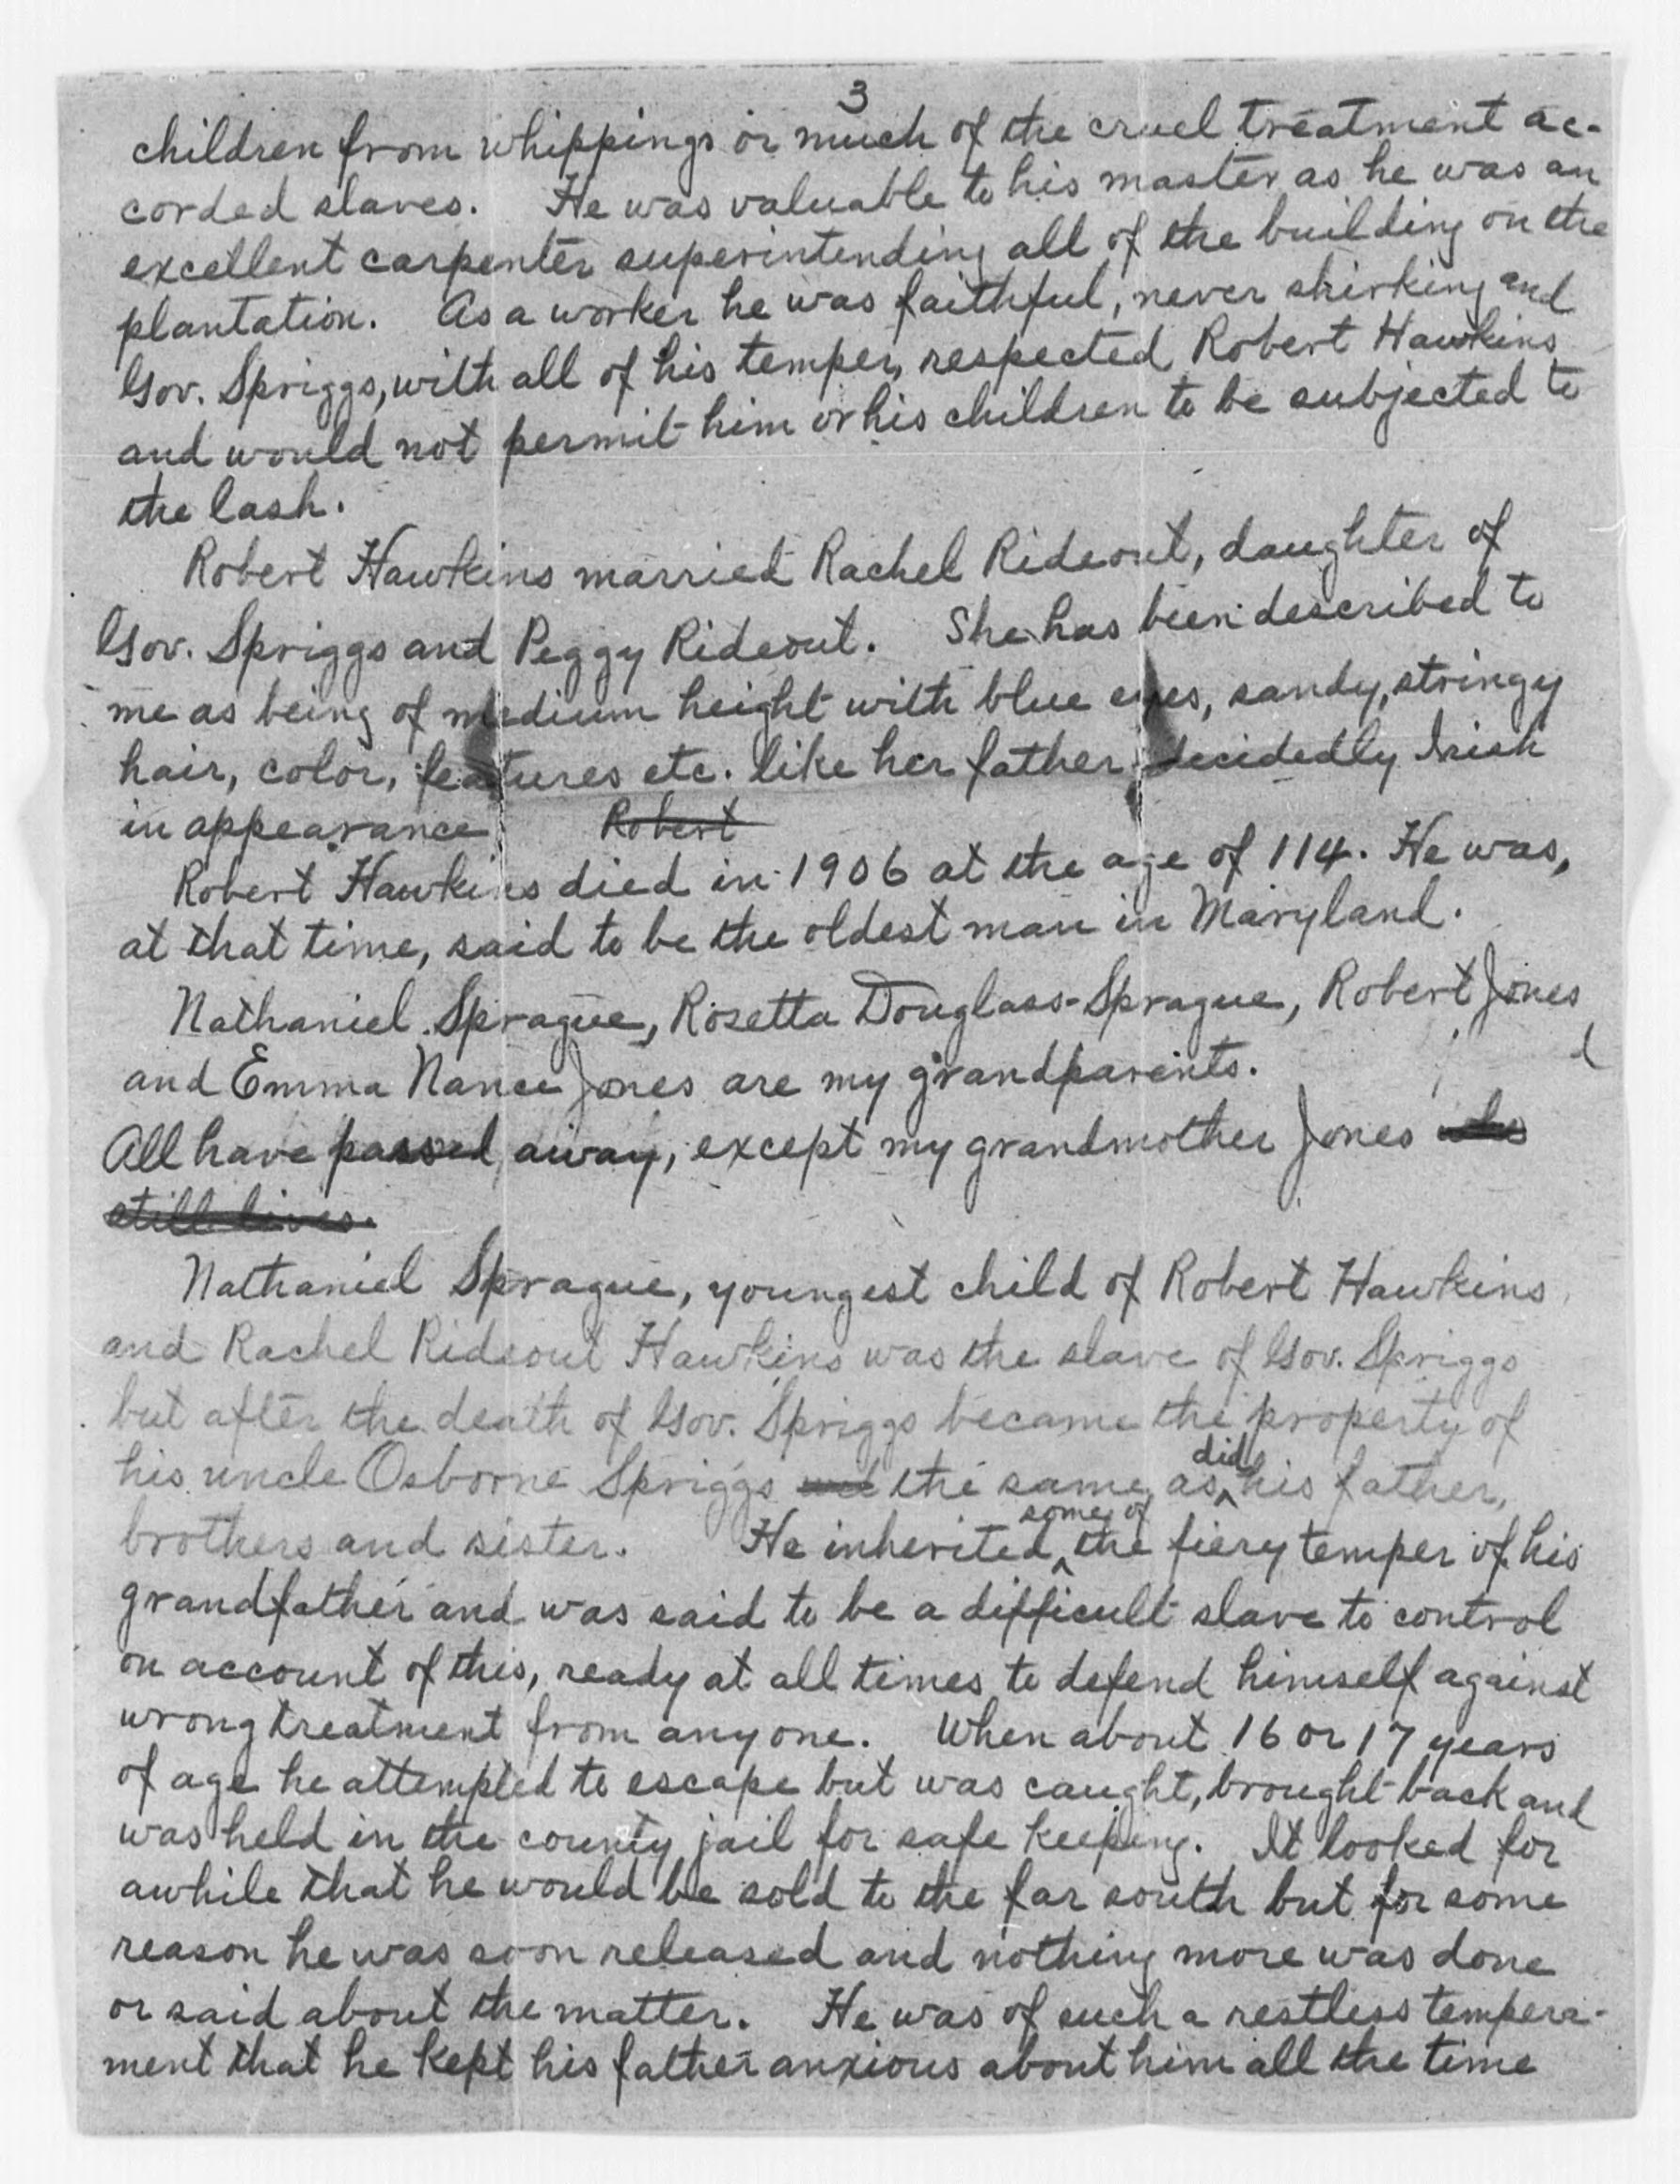 3
children from whippings or much of the cruel treatment ac-
corded slaves. He was valuable to his master as he was an
excellent carpenter superintending all of the building on the
plantation. As a worker he was faithful, never shirking and
Gov. Spriggs, with all of his temper, respected Robert Hawkins
and would not permit him or his children to be subjected to
the lash.
Robert Hawkins married Rachel Rideout, daughter of
Gov. Spriggs and Peggy Rideout. She has been described to
me as being of medium height with blue eyes, sandy, stringy
hair, color, features etc. like her father, decidedly Irish
in appearance. Robert
Robert Hawkins died in 1906 at the age of 114. He was,
at that time, said to be the oldest man in Maryland.
Nathaniel Sprague, Rosetta Douglass-Sprague, Robert Jones
and Emma Nance Jones are my grandparents.
All have passed away, except my grandmother Jones who
still lives.
Nathaniel Sprague, youngest child of Robert Hawkins
and Rachel Rideout Hawkins was the slave of Gov. Spriggs
but after the death of Gov. Spriggs became the property of
his uncle Osborne Spriggs the same as did his father,
brothers and sister. He inherited some of the fiery temper of his
grandfather and was said to be a difficult slave to control
on account of this, ready at all times to defend himself against
wrong treatment from anyone. When about 16 or 17 years
of age he attempted to escape but was caught, brought back and
was held in the county jail for safe keeping. It looked for
awhile that he would be sold to the far south but for some
reason he was soon released and nothing more was done
or said about the matter. He was of such a restless tempera-
ment that he kept his father anxious about him all the time